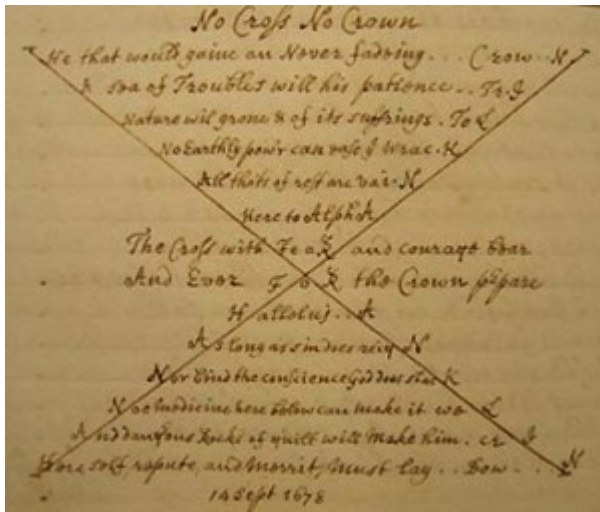 No Cross No Crown
He that would gaine an Never fadeing . . . Crow . . N
A sea of Troubles will his patience . . Tr . I
Nature wil grone & of its suffrings . Te L
No Earthly pow'r can ease ye wrac . K
All thats of rest are vai . N
Here to Alph A
The Cross with Fea R and courage bear
And Ever F o R the Crown prepare
H alleluj . . A
A s long as sin does reig N
N or bind the conscience God does K
N oe Medicine here below can make it we L
A nd dang'rous Rocks of guilt will Make him . cr I
H ere self, repute, and Merrit, Must lay . . Dow . . . N
14 Sept 1678